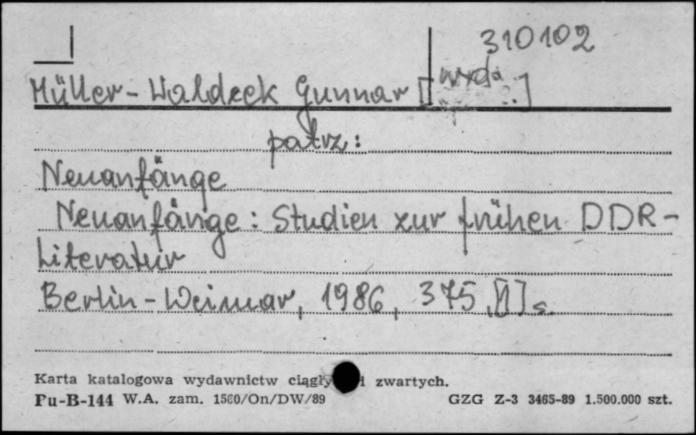 310102
Müller-Waldeck Gunnar [wyd.]
patrz:
Neuanfänge
Neuanfänge: Studien zur frühen DDR-
Literatur
Berlin-Weimar, 1986, 375,[1] s.
Karta katalogowa wydawnictw zwartych.
Pu-B-144 W.A. zam. 1560/On/DW/89 GZG Z-3 3465-89 1.500.000 szt.